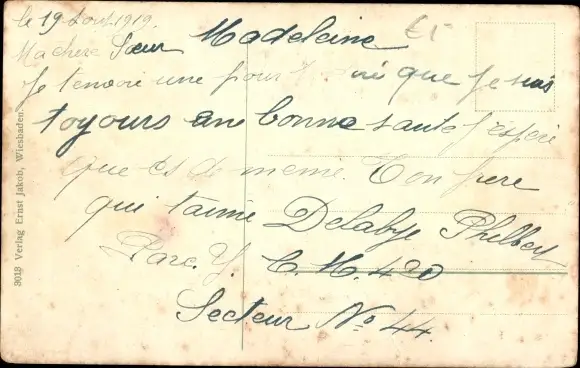 le 19 Aout 1919.
Ma chere Sœur Madeleine
Je tenvoie une pour que je suis
toujours en bonne sante j'espere
que es de meme. Ton frere
qui taime Delaby
Parc. Y. C. M. 420
Secteur No 44.
£1-
3018 Verlag Ernst Jakob, Wiesbaden